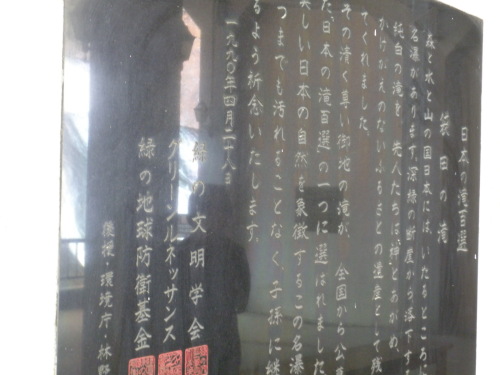 日本の滝百選
袋田の滝
森と水と山の国日本には、いたるところに
名瀑があります。深緑の断崖から落下する
純白の滝を 先人たちは、神とあがめ、
かけがえのないふるさとの遺産として残
てくれました。
その清く尊い御地の滝が、全国から公募
た、日本の滝百選の一つに選ばれました
美しい日本の自然を象徴するこの名瀑
つまでも汚れることなく、子孫に継
るよう祈念いたします。
一九九〇年四月二十八日
緑の文明学会
グリーンルネッサンス
緑の地球防衛基金
後援・環境庁・林野